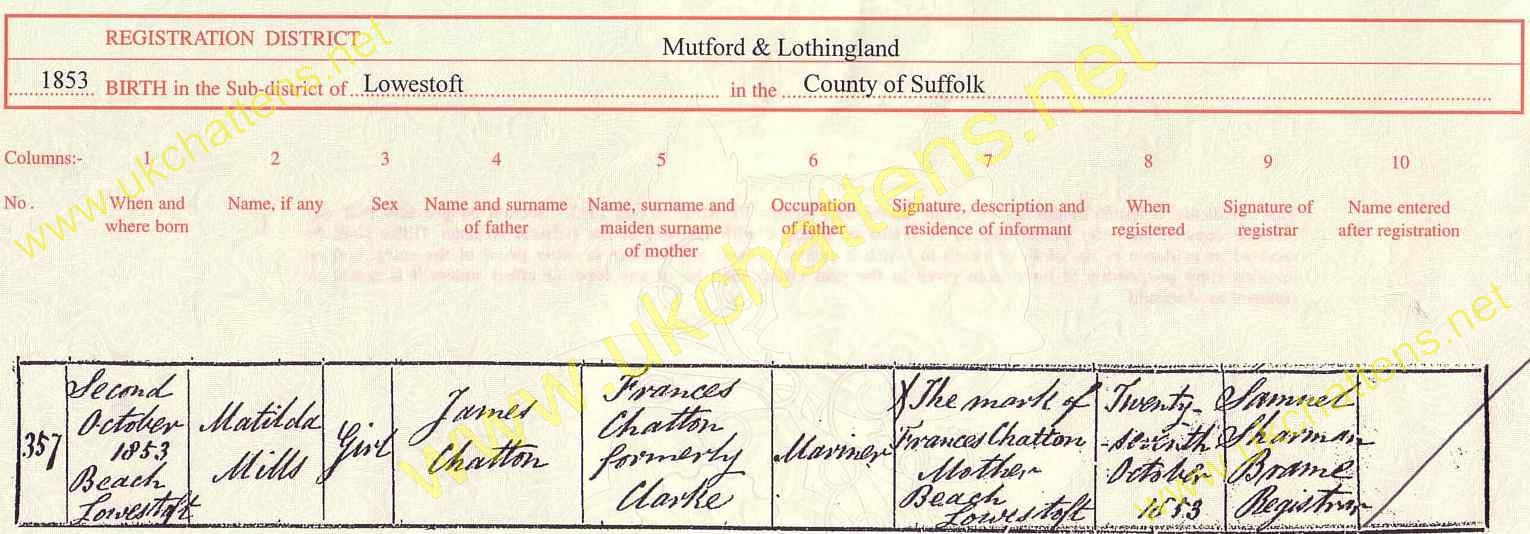 REGISTRATION DISTRICT Mutford & Lothingland
1853 BIRTH in the Sub-district of Lowestoft in the County of Suffolk
Columns:- 1 2 3 4 5 6 7 8 9 10
No. When and where born Name, if any Sex Name and surname of father Name, surname and maiden surname of mother Occupation of father Signature, description and residence of informant When registered Signature of registrar Name entered after registration
357
Second
October
1853
Beach
Lowestoft
Matilda
Mills
Girl
James
Chatton
Frances
Chatton
formerly
Clarke
Mariner
X The mark of
Frances Chatton
Mother
Beach
Lowestoft
Twenty-
-seventh
October
1853
Samuel
Sharman
Brame
Registrar
www.ukchattens.net
www.ukchattens.net
www.ukchattens.net